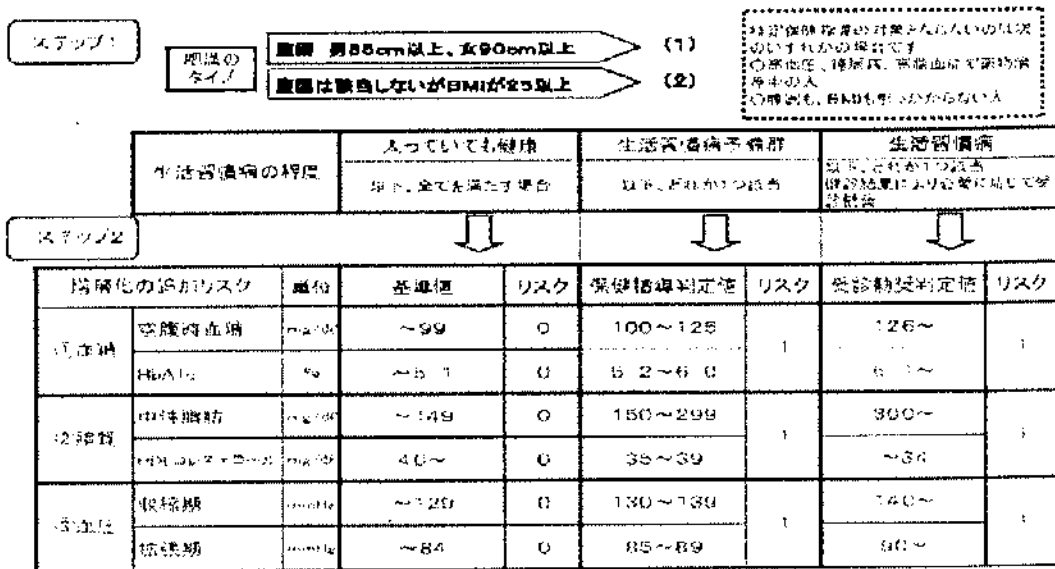 ステップ1
肥満の
タイプ
腹囲 男85cm以上、女90cm以上
(1)
腹囲は該当しないがBMIが25以上
(2)
特定保健指導の対象とならないのは次
のいずれかの場合です
○高血圧、糖尿病、高脂血症で薬物治
療中の人
○腹囲も、BMIも引っかからない人
生活習慣病の程度
太っていても健康
生活習慣病予備群
生活習慣病
以下、全てを満たす場合
以下、どれか1つ該当
以下、どれか1つ該当
健診結果により必要に応じて受
診勧奨
ステップ2
階層化の追加リスク 単位 基準値 リスク 保健指導判定値 リスク 受診勧奨判定値 リスク
①血糖 空腹時血糖 mg/dl ～99 0 100～125 1 126～ 1
HbA1c % ～5.1 0 5.2～6.0 6.1～
②脂質 中性脂肪 mg/dl ～149 0 150～299 1 300～ 1
HDLコレステロール mg/dl 40～ 0 35～39 ～34
③血圧 収縮期 mmHg ～129 0 130～139 1 140～ 1
拡張期 mmHg ～84 0 85～89 90～